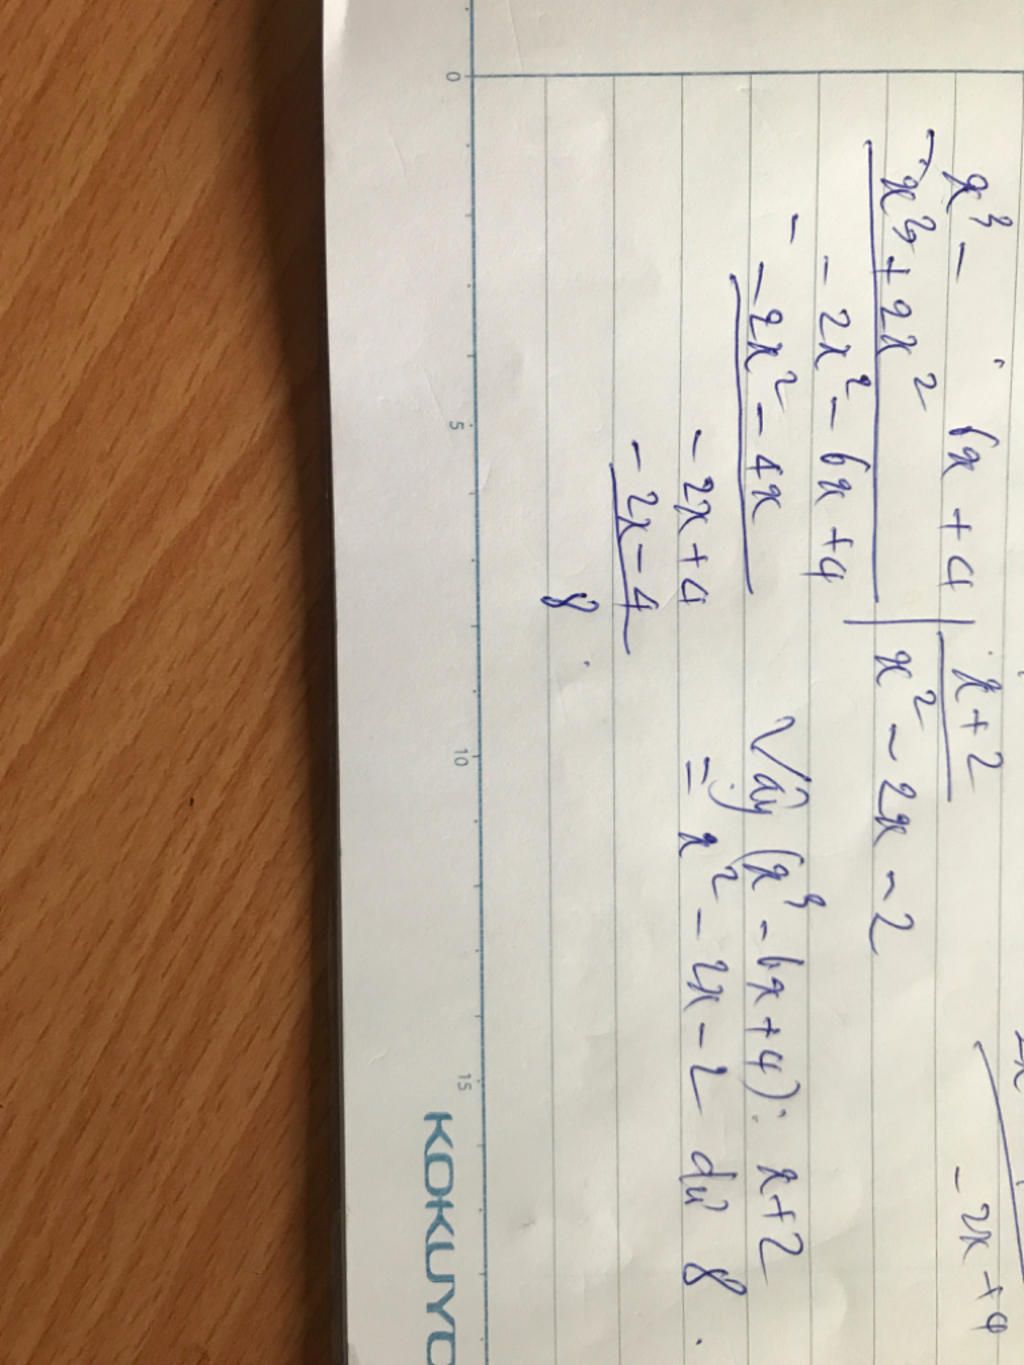 x³ - 6x + 4 | x + 2
- x³ + 2x² | x² - 2x - 2
- 2x² - 6x + 4
- - 2x² - 4x
- 2x + 4
- 2x - 4
8
Vậy (x³ - 6x + 4) : x + 2
= x² - 2x - 2 dư 8.
- 2x + 4
0 5 10 15
KOKUYO